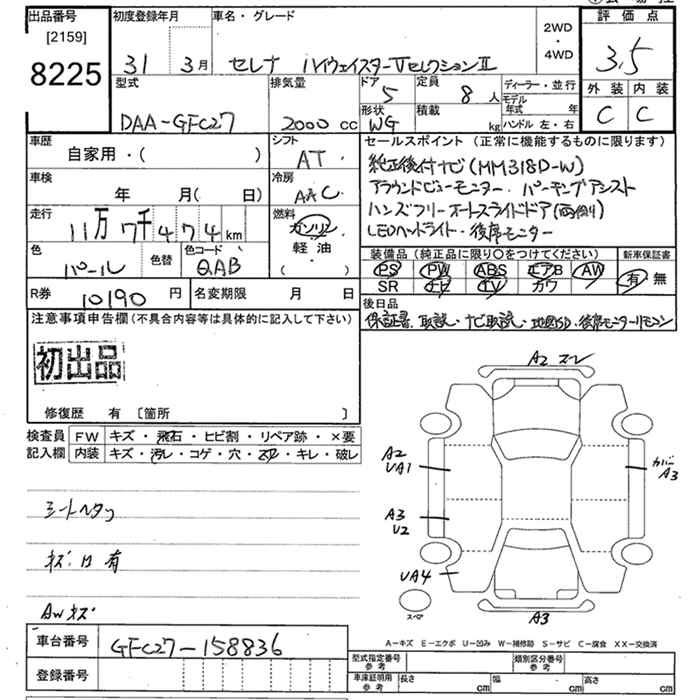 出品番号
[2159]
8225
初度登録年月
31 3月
車名・グレード
セレナ ハイウェイスターVセレクションII
2WD
・
4WD
評価点
3.5
外装 内装
C C
型式
DAA-GFC27
排気量
2000 cc
ドア
5
定員
8 人
形状
WG
積載
kg
ディーラー・並行
モデル年式 年
ハンドル 左・右
車歴
自家用・( )
シフト
AT
車検
年 月( 日)
冷房
AAC
走行
11万 7千 4 7 4 km
燃料
ガソリン
軽油
( )
色
パール
色替
色コード
QAB
R券 10190 円
名変期限 月 日
セールスポイント(正常に機能するものに限ります)
純正後付ナビ(MM318D-W)
アラウンドビューモニター・パーキングアシスト
ハンズフリーオートスライドドア(両側)
LEDヘッドライト・後席モニター
装備品(純正品に限り○をつけてください)
PS PW ABS エアB AW
SR ナビ TV カワ
新車保証書
有・無
後日品
保証書、取説・ナビ取説・地図SD・後席モニターリモコン
注意事項申告欄(不具合内容等は具体的に記入して下さい)
初出品
修復歴 有 [箇所 ]
検査員
記入欄
FW キズ・飛石・ヒビ割・リペア跡・×要
内装 キズ・汚レ・コゲ・穴・スレ・キレ・破レ
シートヘタリ
キズ・凹有
AWキズ
車台番号 GFC27-158836
登録番号
A2 スレ
A2
UA1
A3
U2
UA4
カバー
A3
A3
スペア
A-キズ E-エクボ U-凹み W-補修跡 S-サビ C-腐食 XX-交換済
型式指定番号
参考
類別区分番号
参考
車庫証明用
参考
長さ cm 幅 cm 高さ cm